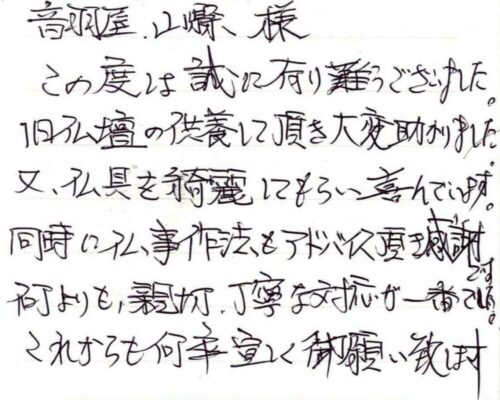 音羽屋、山崎、様
この度は誠に有り難うございました。
旧仏壇の供養して頂き大変助かりました。
又、仏具を綺麗してもらい喜んでいます。
同時に仏事作法もアドバイス頂き感謝です。
何よりも、親切、丁寧な対応が一番でした。
これからも何卒宜しく御願い致します